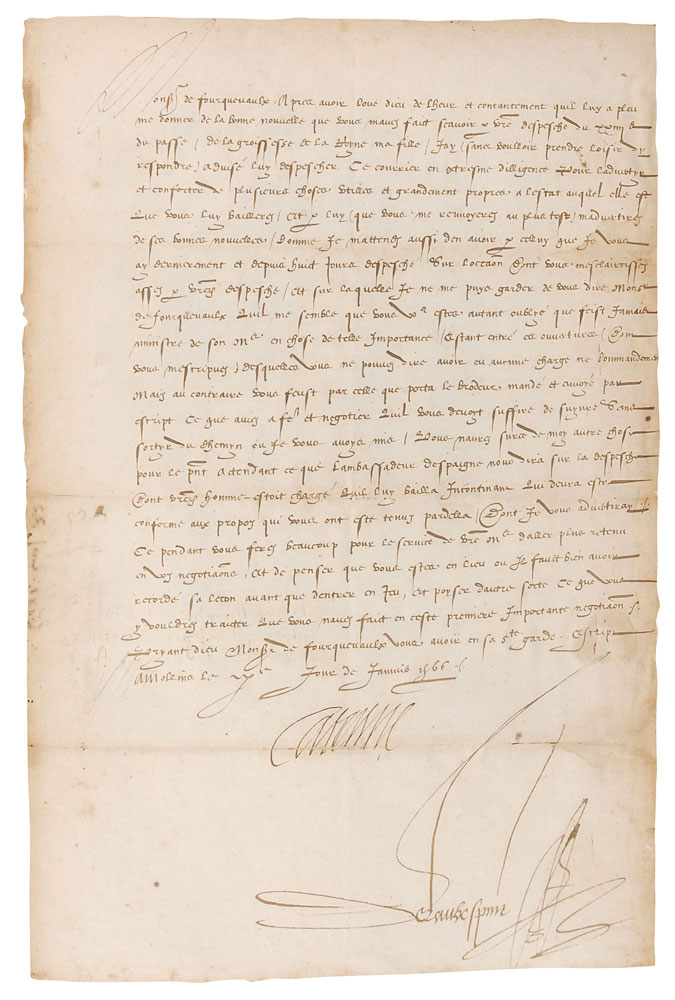 Monsr de fourquevaulx Apres avoir loué dieu de lheur et contantement quil luy a pleu
me donner de la bonne nouvelle que vous mavez fait scavoir p vre despesche du xxiiiie
du passé / de la groissesse de la Royne ma fille / Jay / sans voulloir prendre loisir dy
respondre / advisé luy despescher Ce courrier en dilligence Pour ladvertyr
et conforter de plusieurs choses utilles et grandement propres a lestat auquel elle est
Que vous luy baillerez / Et p luy / que vous me renvoyerez au plus tost / madvertirez
de ses bonnes nouvelles / Comme Je mattendz aussi den avoir p celuy que Je vous
ay dernierement et depuis huit Jours despesché Sur loccaon Dont vous mesclaircissez
assez p vre despesche / Et sur laquelle Je ne me puys garder de vous dire Monsr
de fourquevaulx Quil me semble que vous vous estes autant oublyé que feist Jamais
ministre de son Me en chose de telle Importance / Estant entré es ouvertures / Que
vous mescripvez / desquelles vous ne pouvez dire avoir eu aucune charge ne Commandement
Mais au contraire vous feust par celle que porta le brodeur mandé et envoyé par
escript Ce que aviez a fe et negotier Quil vous devoyt suffire de suyvre Sans
sortyr du Chemyn ou Je vous avoys mis / Vous naurez sur ce de moy autre chose
pour le pnt Attendant ce que Lambassadeur despaigne nous dira sur la despesche
Dont vre homme estoit chargé Quil luy bailla Incontinant Qui devra estre
conforme aux propos qui vous ont esté tenuz pardella / Dont Je vous advertiray /.
Ce pendant vous ferez beaucoup pour le service de vre Me daller plus retenu
en voz negotiaons / Et de penser que vous estes en lieu ou Il fault bien avoir
recordé sa lecon avant que dentrer en Jeu / Et poyser dautre sorte Ce que vous
y vouldrez traicter Que vous navez fait en ceste premiere Importante negotiaon /.
Pryant dieu Monsr de fourquevaulx vous avoir en sa ste garde. Escript
A Molins le Jour de Janvier 1566 /.
Caterine
Delaubespine